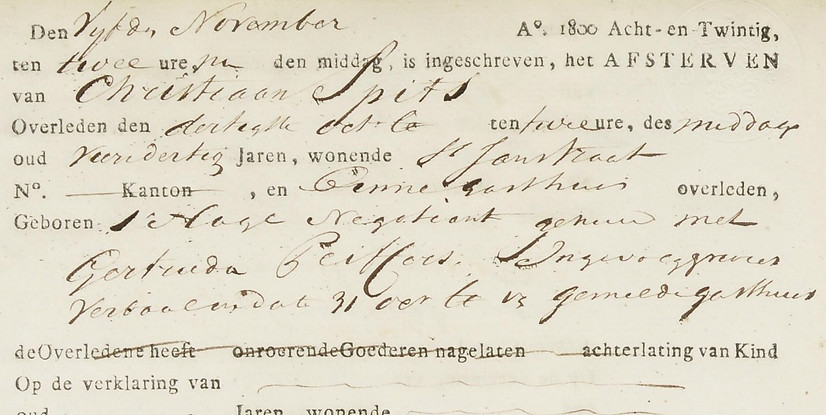 Den Vyfde November A°. 1800 Acht-en-Twintig,
ten twee ure, na den middag, is ingeschreven, het AFSTERVEN
van Christiaan Spits
Overleden den dertigste Oct ten twee ure, des middags
oud Vierendertig Jaren, wonende St Janstraat
N°. Kanton , en Binnegasthuis overleden,
Geboren s'Hage Negotiant gehuwd met
Gertruda Peiffers. Ingevolge
Verbaal in dato 31 Oct gemelde gasthuis
de Overledene heeft onroerende Goederen nagelaten achterlating van Kind
Op de verklaring van
oud Jaren, wonende